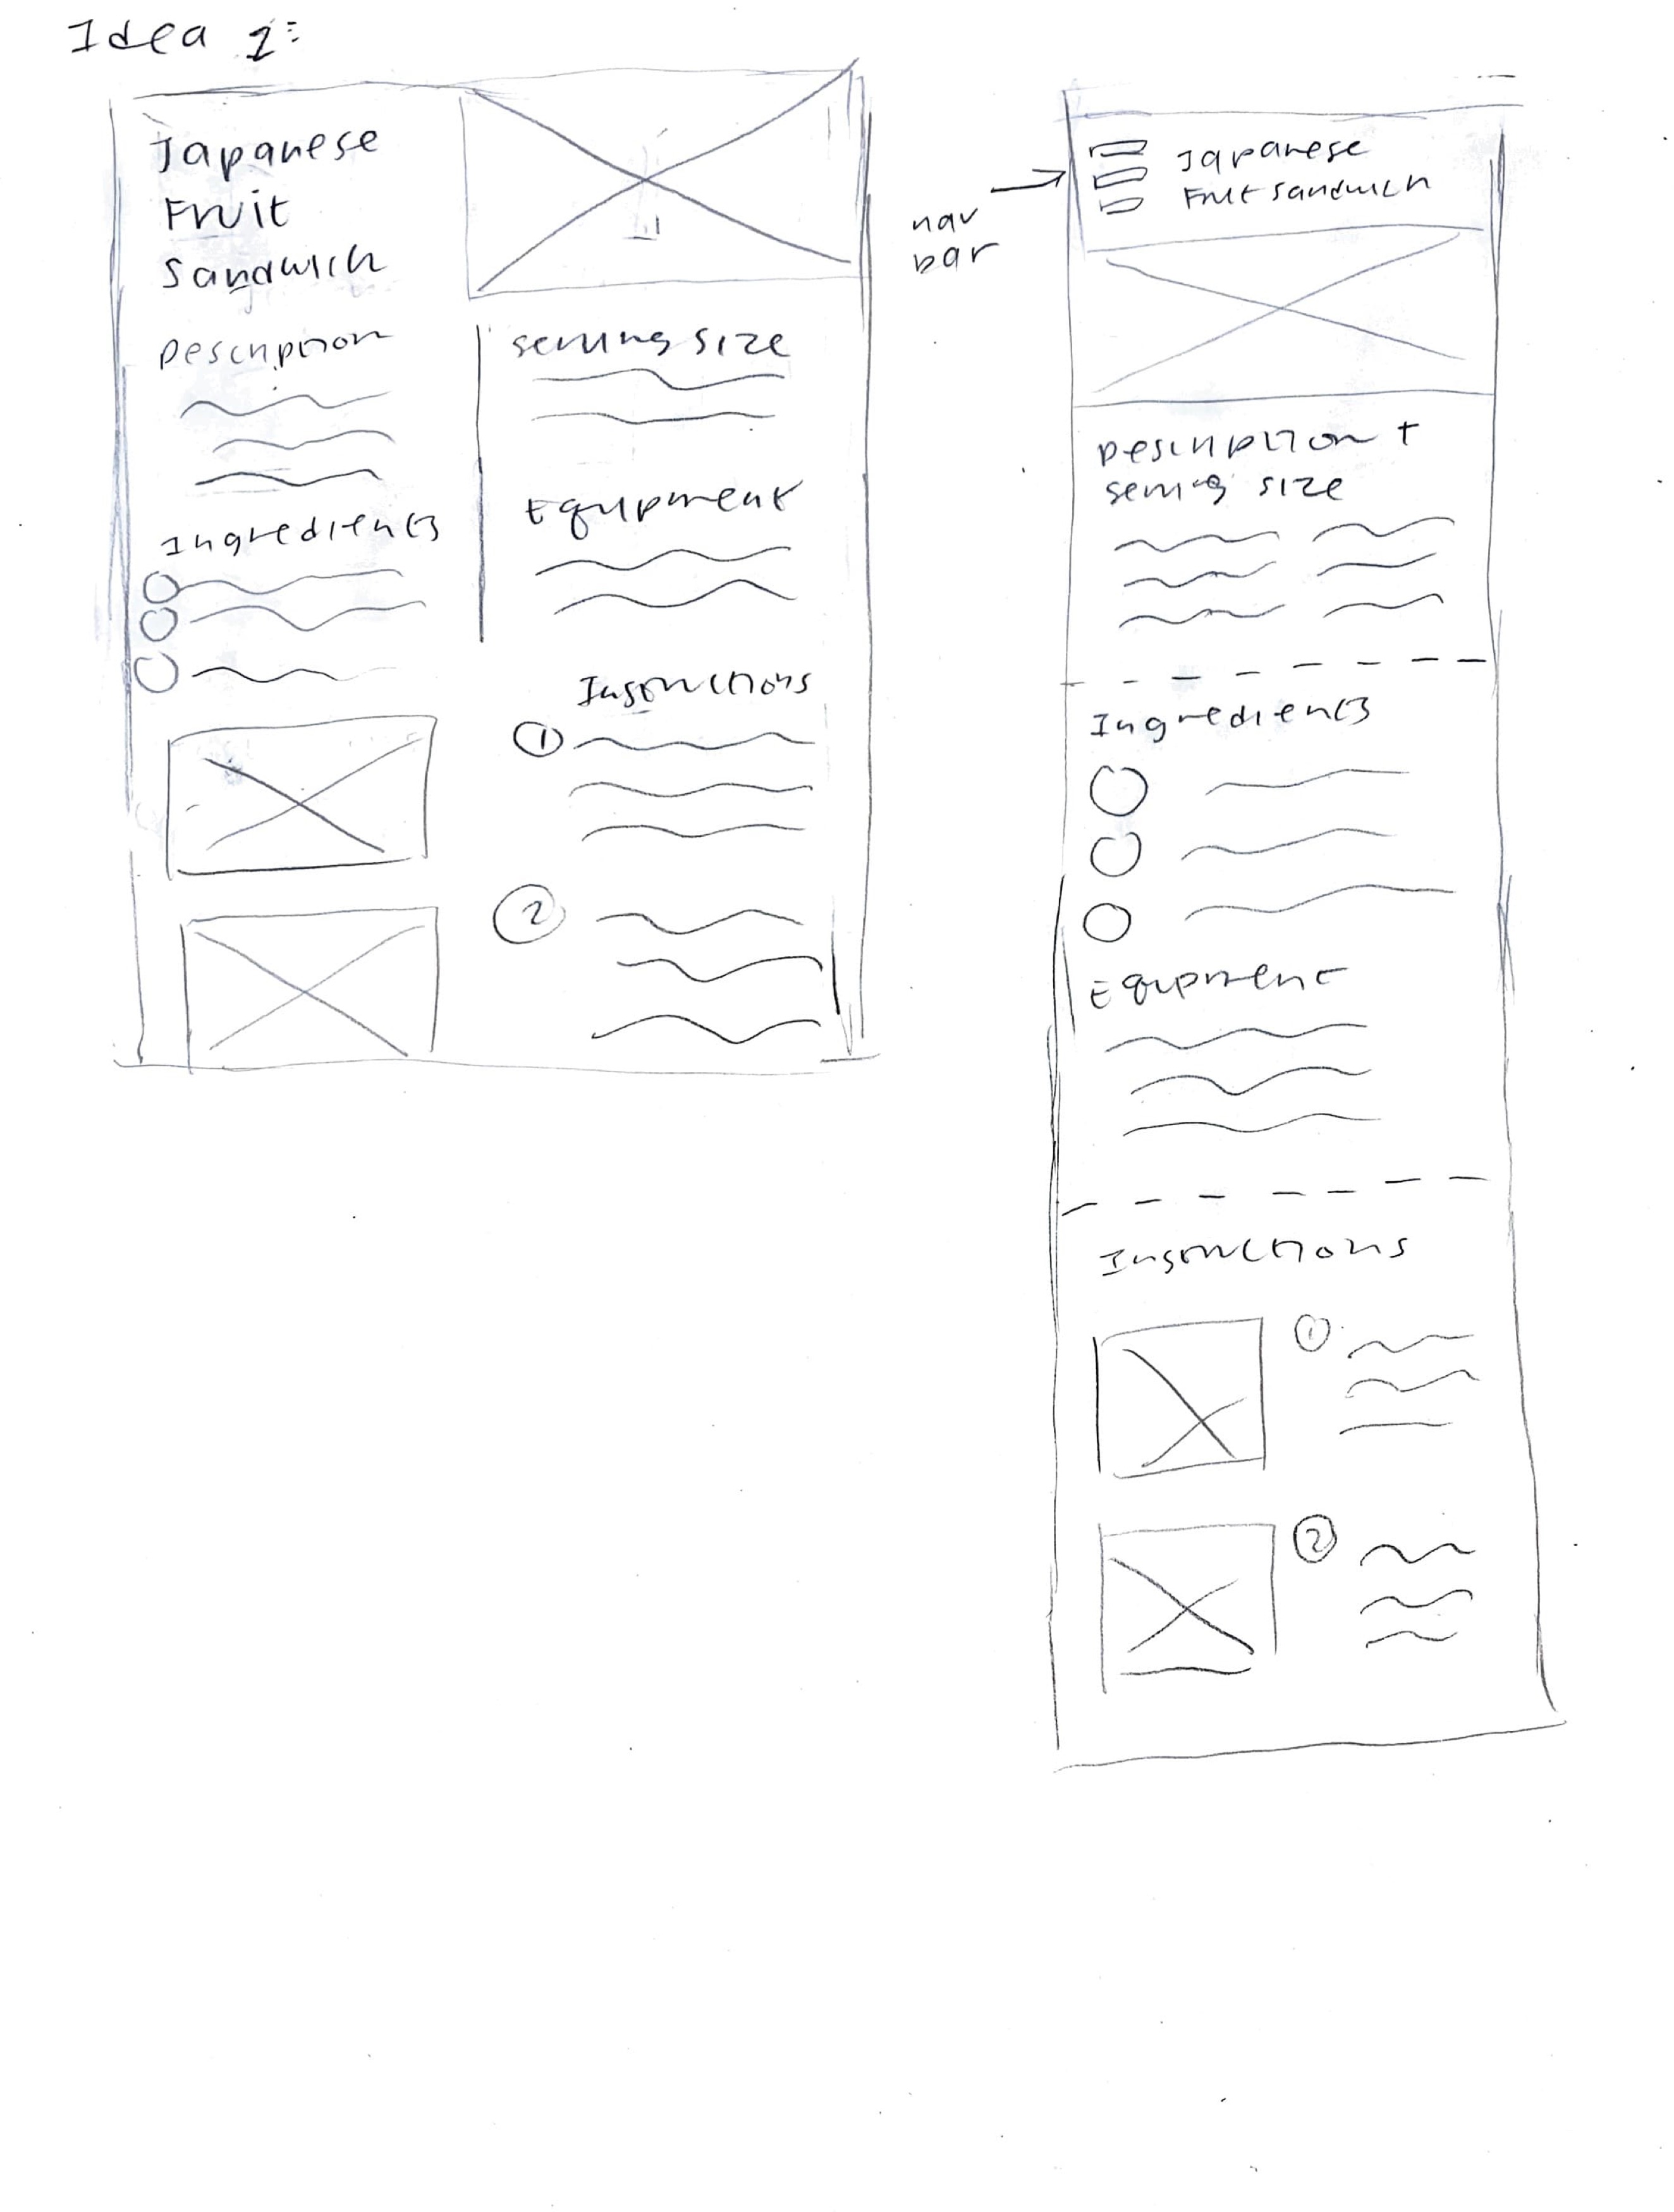 Idea 1:
Japanese
Fruit
Sandwich
Description
Ingredients
Serving size
Equipment
Instructions
1
2
nav
bar
Japanese
Fruit sandwich
Description +
serving size
Ingredients
Equipment
Instructions
1
2